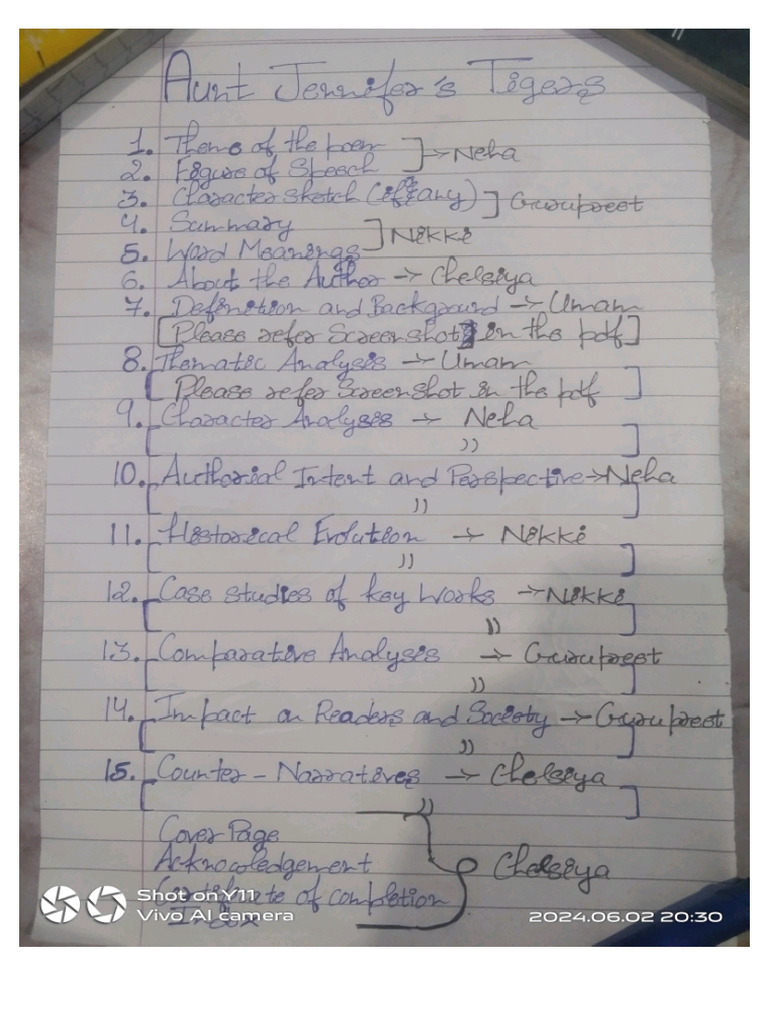 Aunt Jennifer's Tigers
1. Theme of the poem
2. Figure of Speech
] → Neha
3. Character Sketch (if any) ] Gurupreet
4. Summary
5. Word Meanings
] Nikki
6. About the Author → Chelsiya
7. Definition and Background → Umam
[Please refer Screenshot in the pdf]
8. Thematic Analysis → Umam
[Please refer Screenshot in the pdf]
9. Character Analysis → Neha
[ )) ]
10. Authorial Intent and Perspective → Neha
[ )) ]
11. Historical Evolution → Nikki
[ )) ]
12. Case studies of key works → Nikki
[ )) ]
13. Comparative Analysis → Gurupreet
[ )) ]
14. Impact on Readers and Society → Gurupreet
[ )) ]
15. Counter - Narratives → Chelsiya
[ )) ]
Cover Page
Acknowledgement
Chelsiya
Certificate of completion
Index
Shot on Y11
Vivo AI camera
2024.06.02 20:30